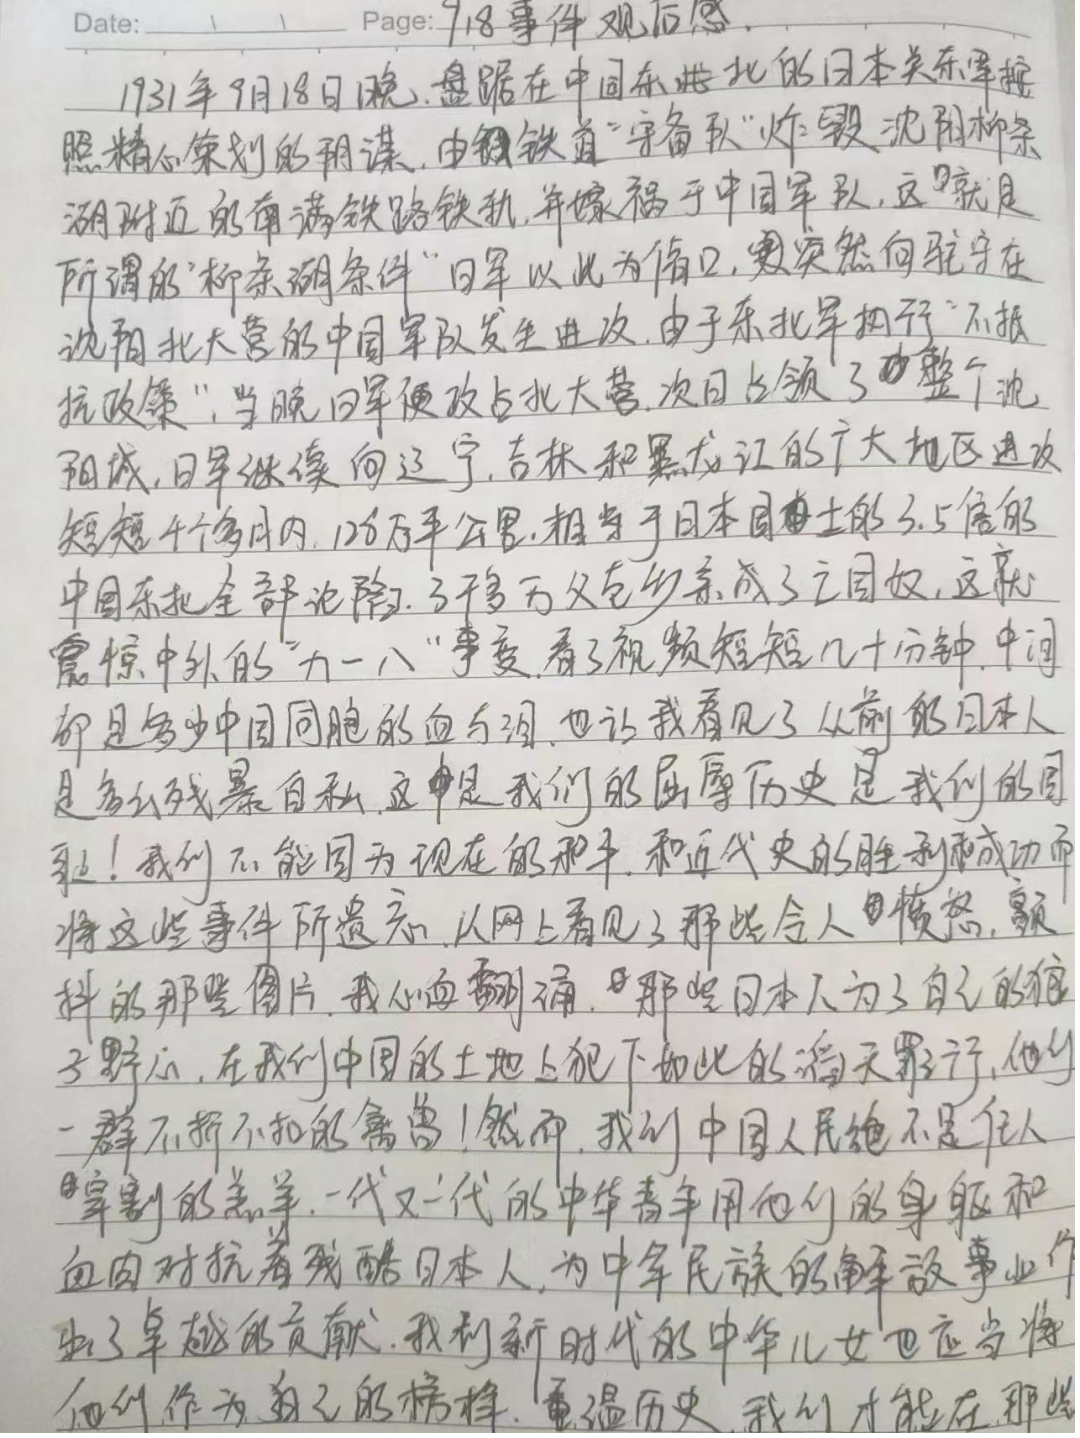 Date: Page: 918事件观后感.
1931年9月18日晚,盘踞在中国东北的日本关东军按
照精心策划的阴谋,由铁道"守备队"炸毁沈阳柳条
湖附近的南满铁路铁轨,并嫁祸于中国军队,这就是
所谓的"柳条湖条件"日军以此为借口,突然向驻守在
沈阳北大营的中国军队发生进攻.由于东北军执行"不抵
抗政策",当晚日军便攻占北大营,次日占领了整个沈
阳城,日军继续向辽宁,吉林和黑龙江的广大地区进攻
短短4个多月内,128万平公里,相当于日本国土的3.5倍的
中国东北全部沦陷,3千多万父老乡亲成了亡国奴,这就
震惊中外的"九一八"事变,看了视频短短几十分钟,中间
却是多少中国同胞的血与泪,也让我看见了从前的日本人
是多么残暴自私,这是我们的屈辱历史是我们的国
耻!我们不能因为现在的和平,和近代史的胜利和成功而
将这些事件所遗忘,从网上看见了那些令人愤怒,颤
抖的那些图片,我心血翻涌,那些日本人为了自己的狼
子野心,在我们中国的土地上犯下如此的滔天罪行,他们
一群不折不扣的禽兽!然而,我们中国人民绝不是任人
宰割的羔羊,一代又一代的中华青年用他们的身躯和
血肉对抗着残酷日本人,为中华民族的解放事业作
出了卓越的贡献,我们新时代的中华儿女也应当将
他们作为自己的榜样,重温历史,我们才能在那些